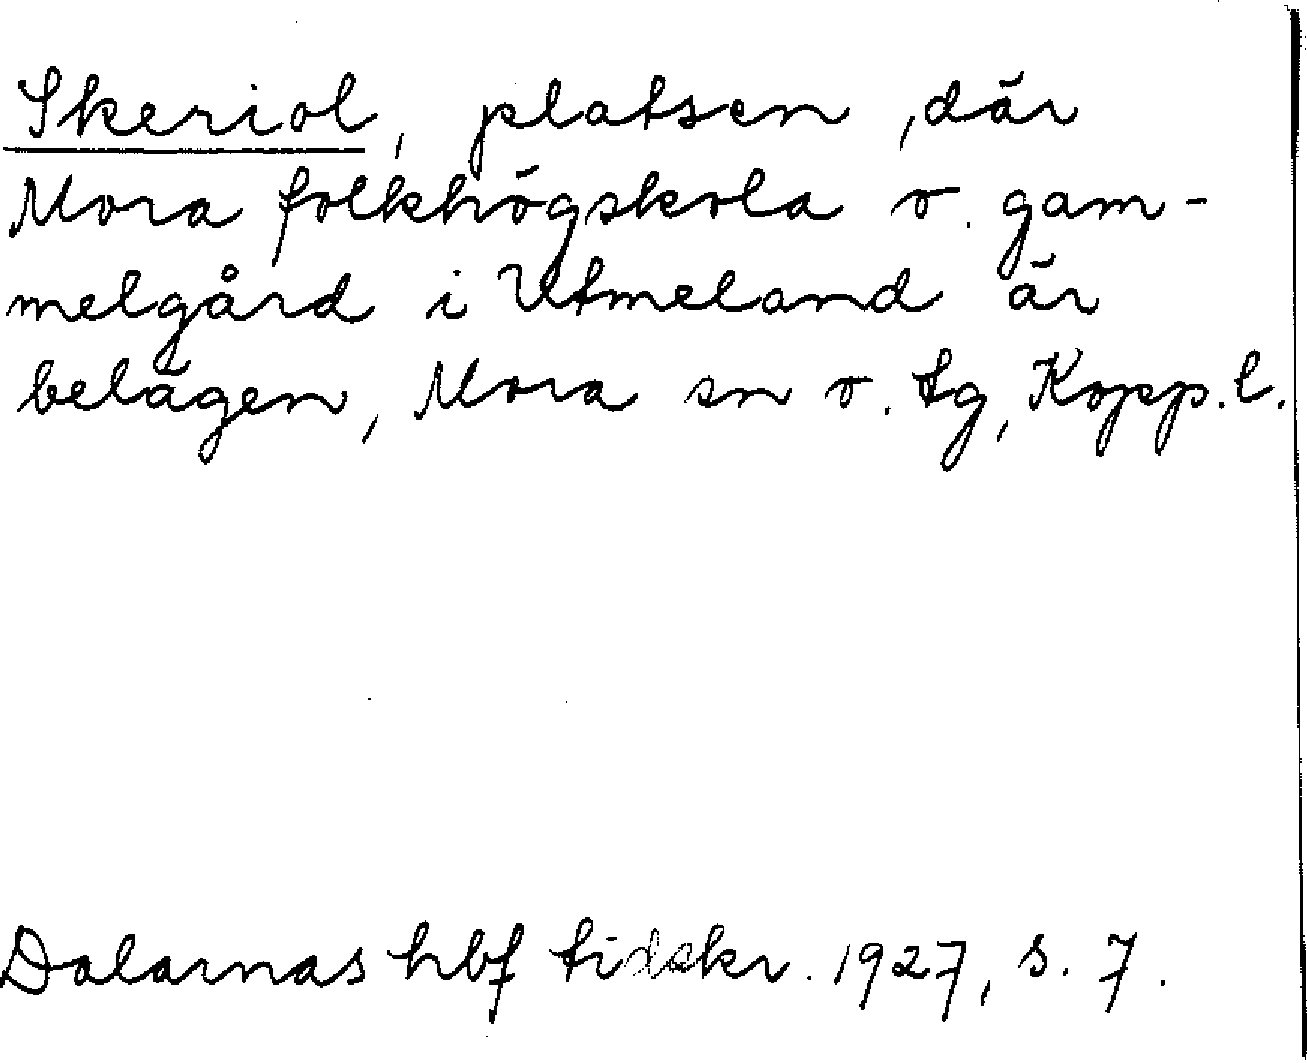 Skeriol, platsen, där
Mora folkhögskola o. gam-
melgård i Utmeland är
belägen, Mora sn o. tg, Kopp. l.
Dalarnas hbf tidskr. 1927, s. 7.